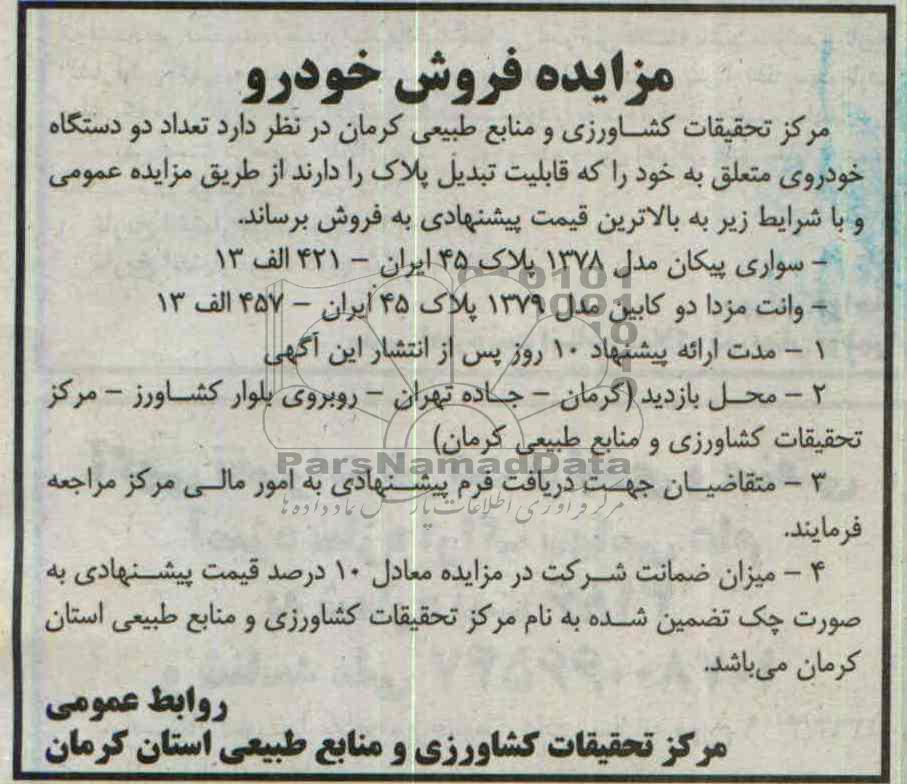 مزایده فروش خودرو
مرکز تحقیقات کشاورزی و منابع طبیعی کرمان در نظر دارد تعداد دو دستگاه
خودروی متعلق به خود را که قابلیت تبدیل پلاک را دارند از طریق مزایده عمومی
و با شرایط زیر به بالاترین قیمت پیشنهادی به فروش برساند.
- سواری پیکان مدل ۱۳۷۸ پلاک ۴۵ ایران - ۴۲۱ الف ۱۳
- وانت مزدا دو کابین مدل ۱۳۷۹ پلاک ۴۵ ایران - ۴۵۷ الف ۱۳
۱ - مدت ارائه پیشنهاد ۱۰ روز پس از انتشار این آگهی
۲ - محل بازدید (کرمان - جاده تهران - روبروی بلوار کشاورز - مرکز
تحقیقات کشاورزی و منابع طبیعی کرمان)
ParsNamadData
۳ - متقاضیان جهت دریافت فرم پیشنهادی به امور مالی مرکز مراجعه
مرکز فرآوری اطلاعات پارس نماد داده ها
فرمایند.
۴ - میزان ضمانت شرکت در مزایده معادل ۱۰ درصد قیمت پیشنهادی به
صورت چک تضمین شده به نام مرکز تحقیقات کشاورزی و منابع طبیعی استان
کرمان می‌باشد.
روابط عمومی
مرکز تحقیقات کشاورزی و منابع طبیعی استان کرمان